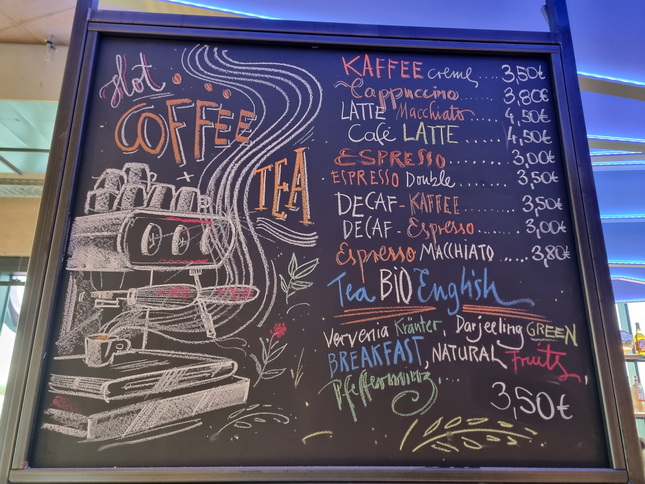 Hot
COFFEE
+
TEA
KAFFEE creme .... 3,50€
Cappuccino ........ 3,80€
LATTE Macchiato ..... 4,50€
Café LATTE ....... 4,50€
ESPRESSO ....... 3,00€
ESPRESSO Double ....... 3,50€
DECAF - KAFFEE ....... 3,50€
DECAF - Espresso ....... 3,00€
Espresso MACCHIATO ..... 3,80€
Tea BIO English
Vervenia Kräuter, Darjeeling GREEN
BREAKFAST, NATURAL Fruits,
Pfefferminz...
3,50€